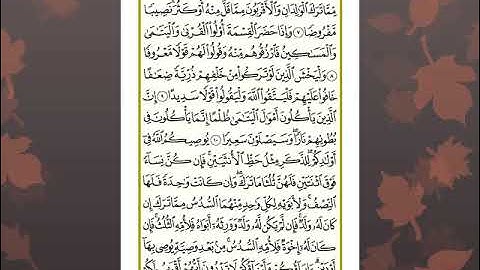 مِّمَّا تَرَكَ الْوَالِدَانِ وَالْأَقْرَبُونَ مِمَّا قَلَّ مِنْهُ أَوْ كَثُرَ نَصِيبًا
مَّفْرُوضًا ٧ وَإِذَا حَضَرَ الْقِسْمَةَ أُولُوا الْقُرْبَىٰ وَالْيَتَامَىٰ
وَالْمَسَاكِينُ فَارْزُقُوهُم مِّنْهُ وَقُولُوا لَهُمْ قَوْلًا مَّعْرُوفًا
٨ وَلْيَخْشَ الَّذِينَ لَوْ تَرَكُوا مِنْ خَلْفِهِمْ ذُرِّيَّةً ضِعَافًا
خَافُوا عَلَيْهِمْ فَلْيَتَّقُوا اللَّهَ وَلْيَقُولُوا قَوْلًا سَدِيدًا ٩ إِنَّ
الَّذِينَ يَأْكُلُونَ أَمْوَالَ الْيَتَامَىٰ ظُلْمًا إِنَّمَا يَأْكُلُونَ فِي
بُطُونِهِمْ نَارًا وَسَيَصْلَوْنَ سَعِيرًا ١٠ يُوصِيكُمُ اللَّهُ فِي
أَوْلَادِكُمْ لِلذَّكَرِ مِثْلُ حَظِّ الْأُنثَيَيْنِ فَإِن كُنَّ نِسَاءً
فَوْقَ اثْنَتَيْنِ فَلَهُنَّ ثُلُثَا مَا تَرَكَ وَإِن كَانَتْ وَاحِدَةً فَلَهَا
النِّصْفُ وَلِأَبَوَيْهِ لِكُلِّ وَاحِدٍ مِّنْهُمَا السُّدُسُ مِمَّا تَرَكَ إِن
كَانَ لَهُ وَلَدٌ فَإِن لَّمْ يَكُن لَّهُ وَلَدٌ وَوَرِثَهُ أَبَوَاهُ فَلِأُمِّهِ الثُّلُثُ فَإِن
كَانَ لَهُ إِخْوَةٌ فَلِأُمِّهِ السُّدُسُ مِن بَعْدِ وَصِيَّةٍ يُوصِي بِهَا
أَوْ دَيْنٍ آبَاؤُكُمْ وَأَبْنَاؤُكُمْ لَا تَدْرُونَ أَيُّهُمْ أَقْرَبُ لَكُمْ